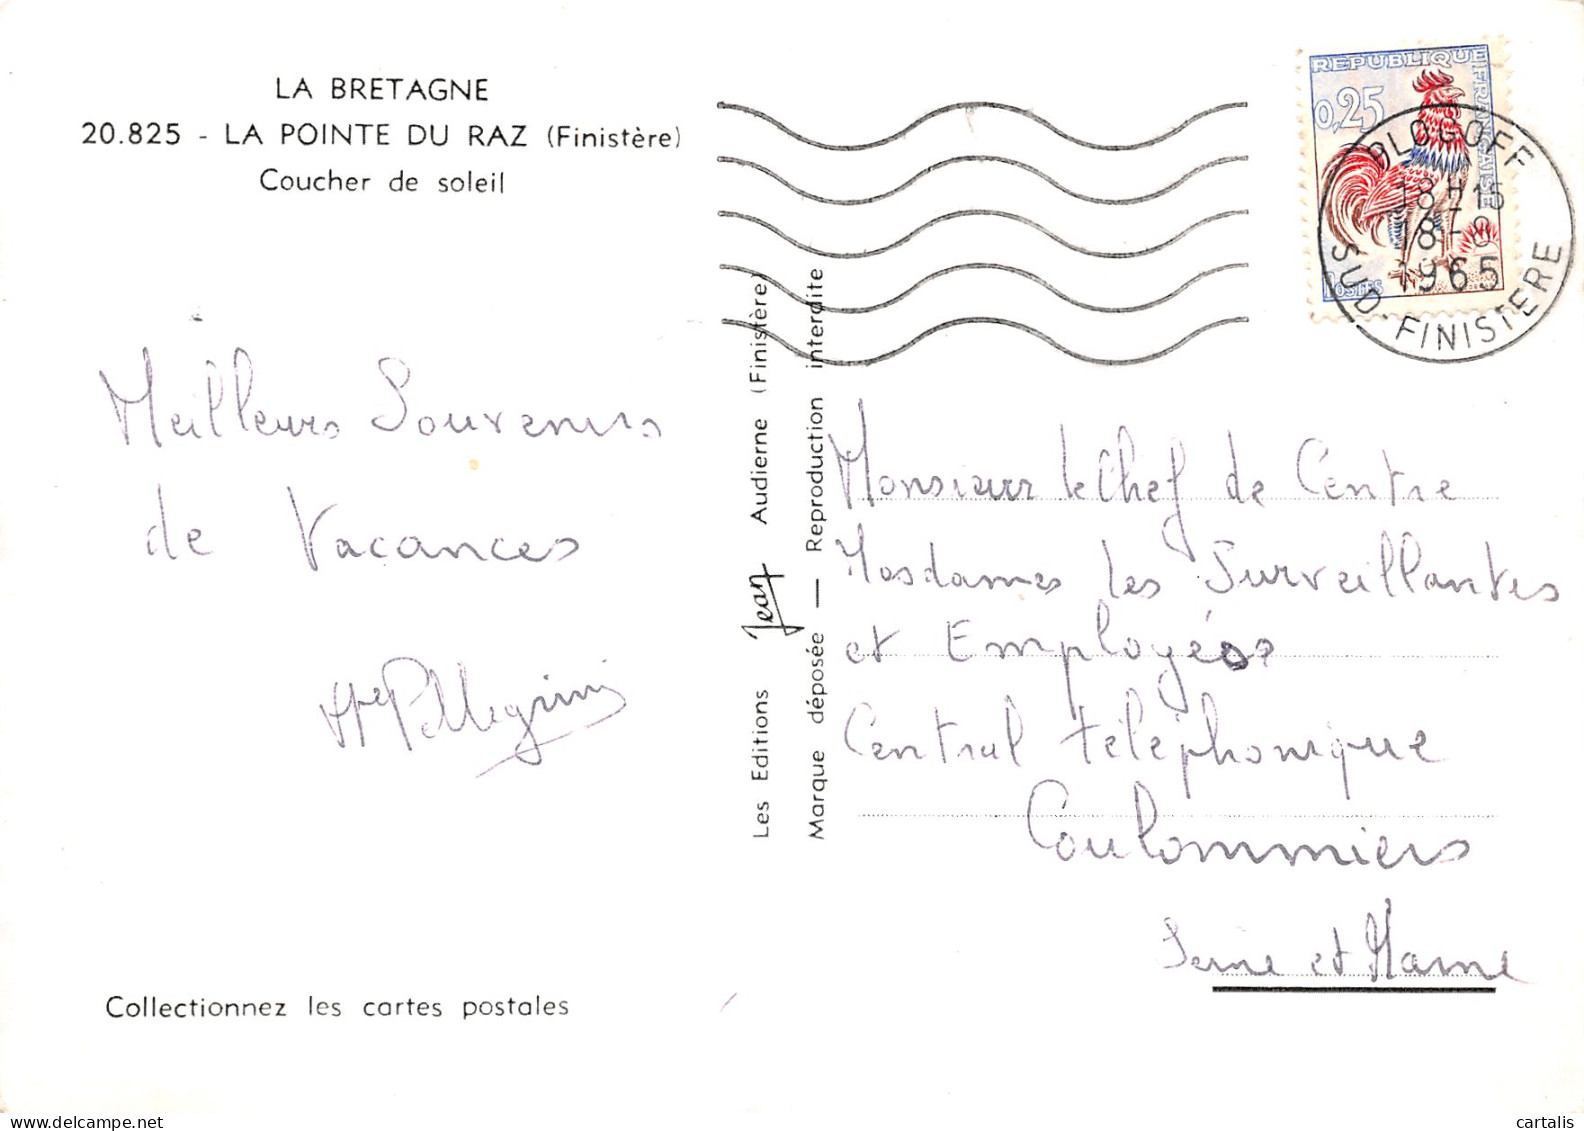 LA BRETAGNE
20.825 - LA POINTE DU RAZ (Finistère)
Coucher de soleil
Meilleurs Souvenirs
de Vacances
Pellegrini
Collectionnez les cartes postales
Les Editions Jean Audierne (Finistère)
Marque déposée — Reproduction interdite
REPUBLIQUE FRANÇAISE
0,25
POSTES
PLOGOFF
18H15
18-
1965
SUD-FINISTERE
Monsieur le Chef de Centre
Mesdames les Surveillantes
et Employées
Central téléphonique
Coulommiers
Seine et Marne
cartalis